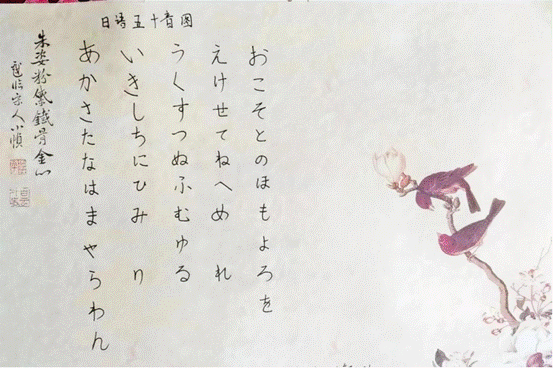 日语五十音图
あかさたなはまやらわん
いきしちにひみ り
うくすつぬふむゆる
えけせてねへめ れ
おこそとのほもよろを
朱姿粉黛鐵骨金心
临宋人小幀